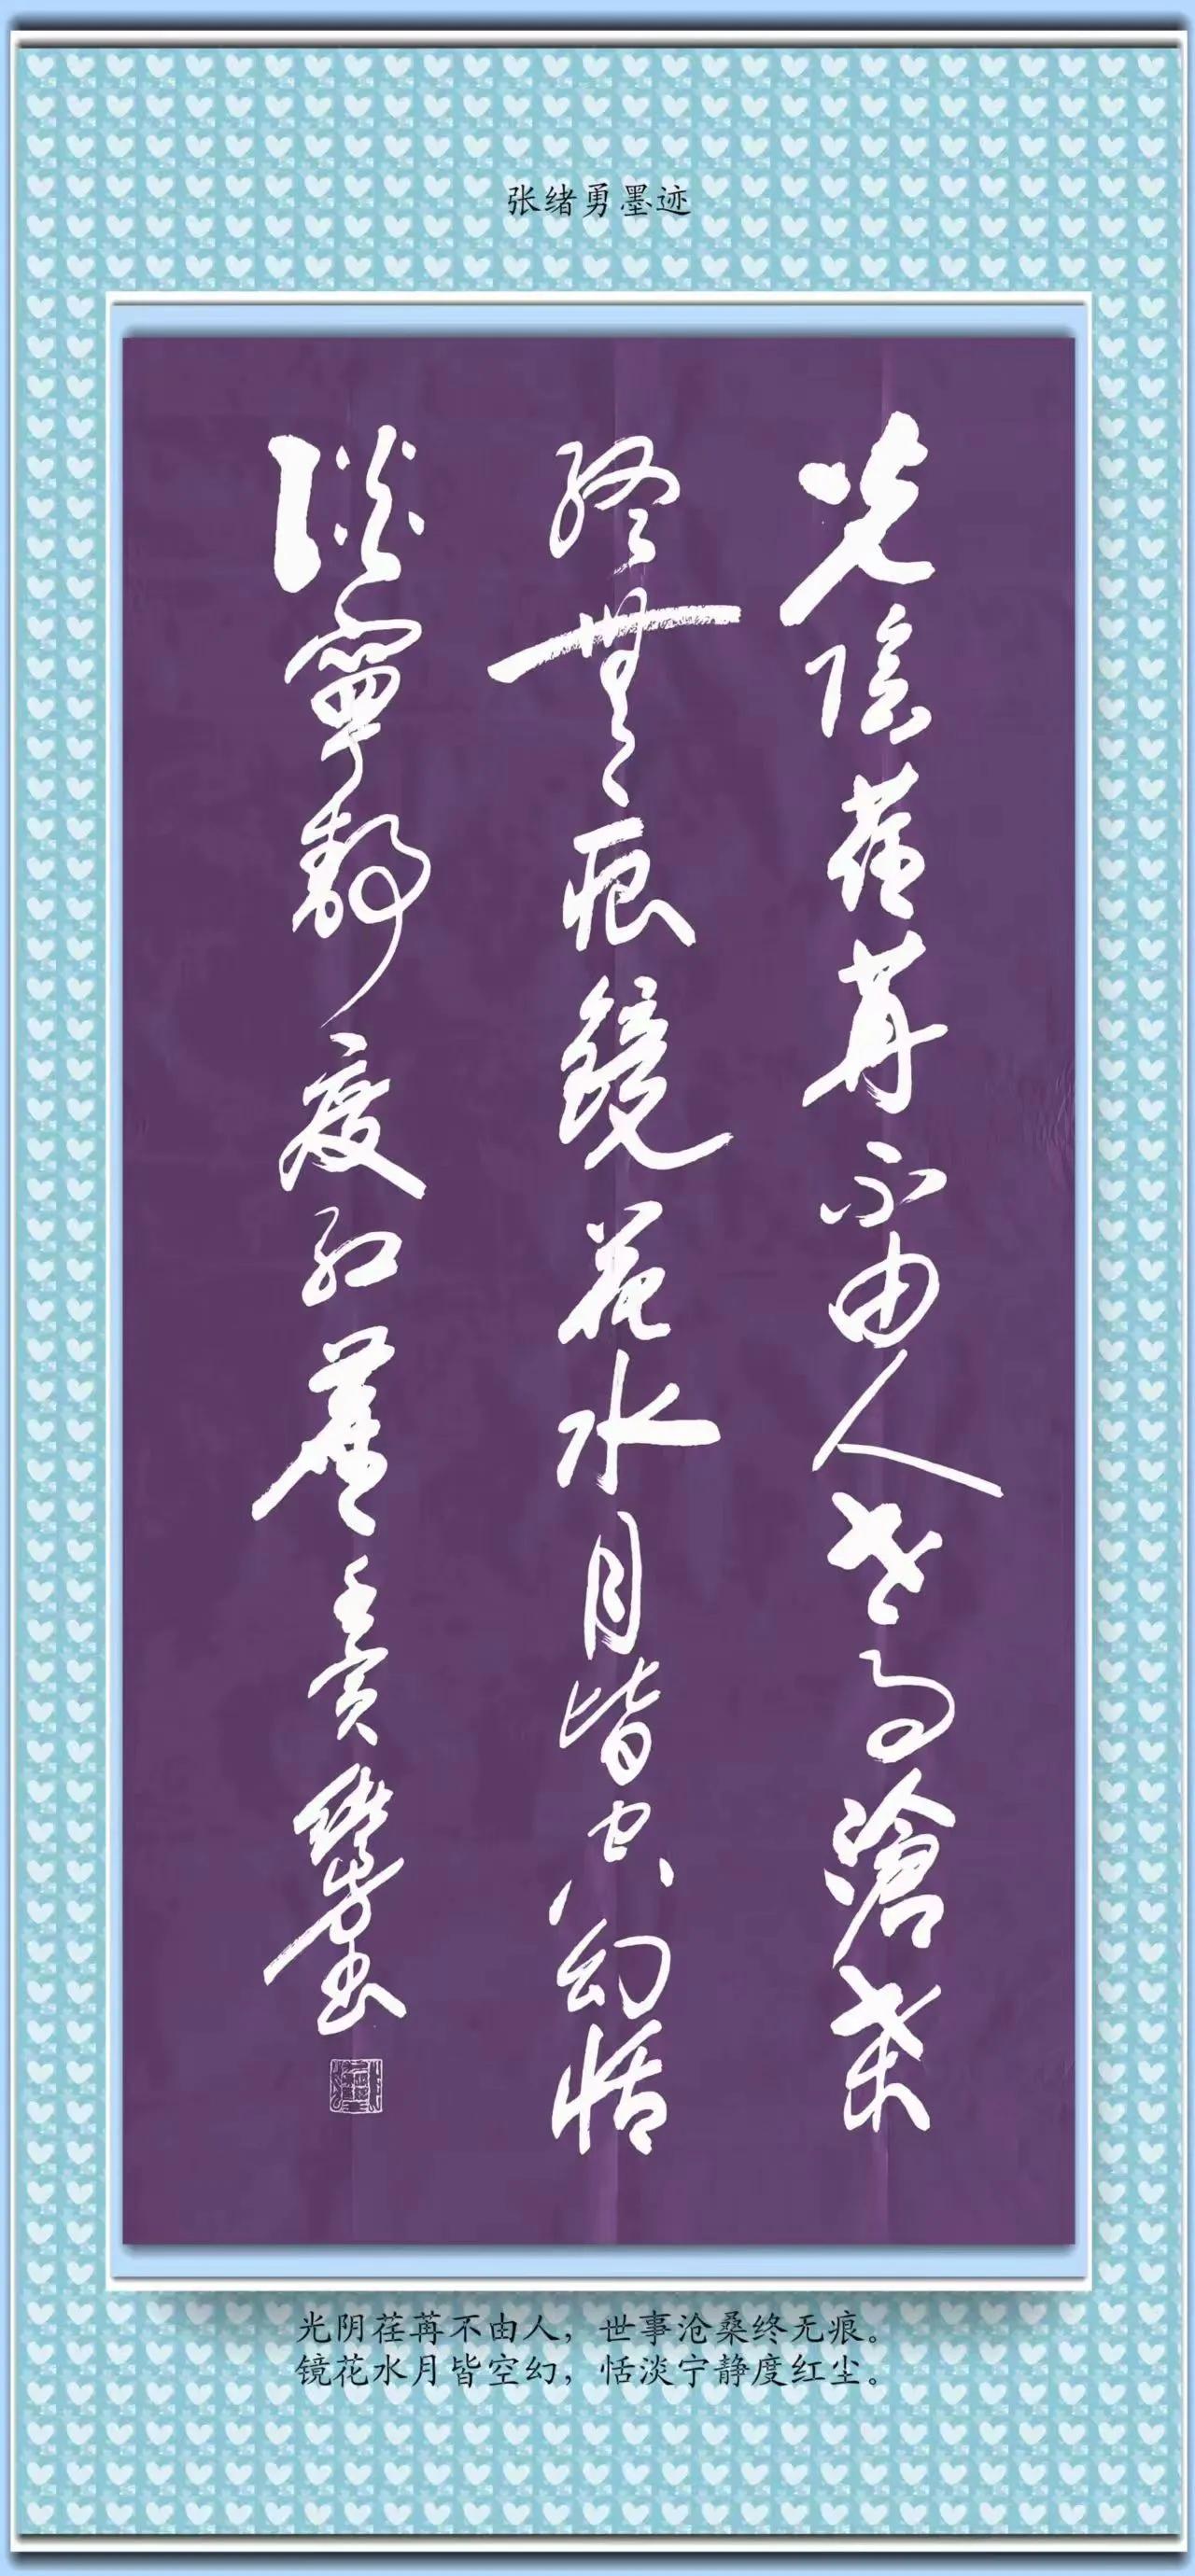 张绪勇墨迹
光陰荏苒不由人世事滄桑
終無痕鏡花水月皆空幻恬
淡寧靜度紅塵壬寅
光阴荏苒不由人，世事沧桑终无痕。
镜花水月皆空幻，恬淡宁静度红尘。